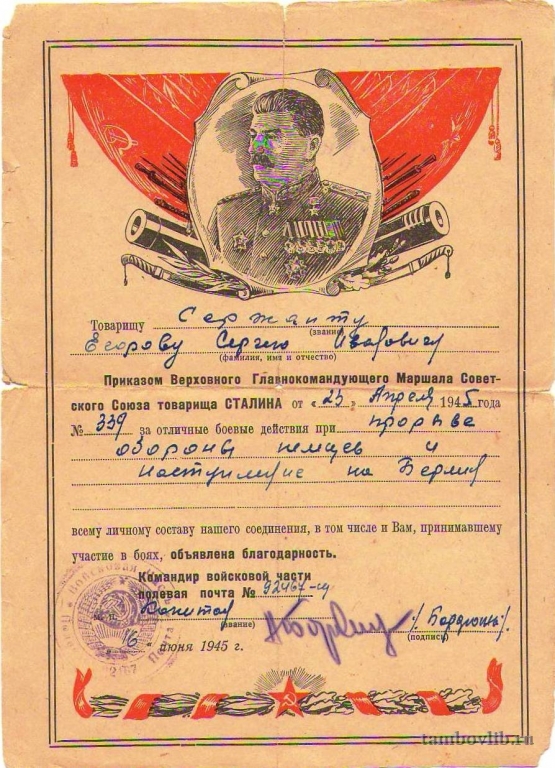 Товарищу Сержанту
(звание)
Егорову Сергею Ивановичу
(фамилия, имя и отчество)
Приказом Верховного Главнокомандующего Маршала Совет-
ского Союза товарища СТАЛИНА от «23» Апреля 1945 года
№ 339 за отличные боевые действия при прорыве
обороны немцев и
наступление на Берлин
всему личному составу нашего соединения, в том числе и Вам, принимавшему
участие в боях, объявлена благодарность.
Командир войсковой части
полевая почта № 92467-
Капитан
(звание)
(подпись)
16 июня 1945 г.
tambovlib.ru